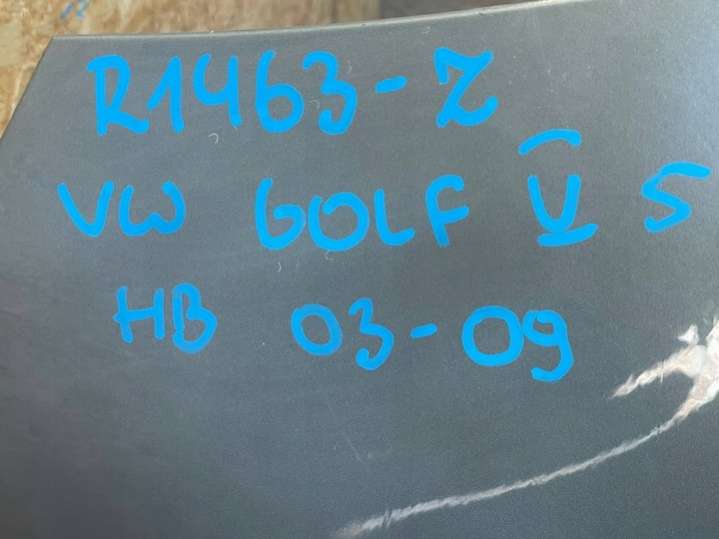 R1463-Z
VW GOLF V 5
HB 03-09